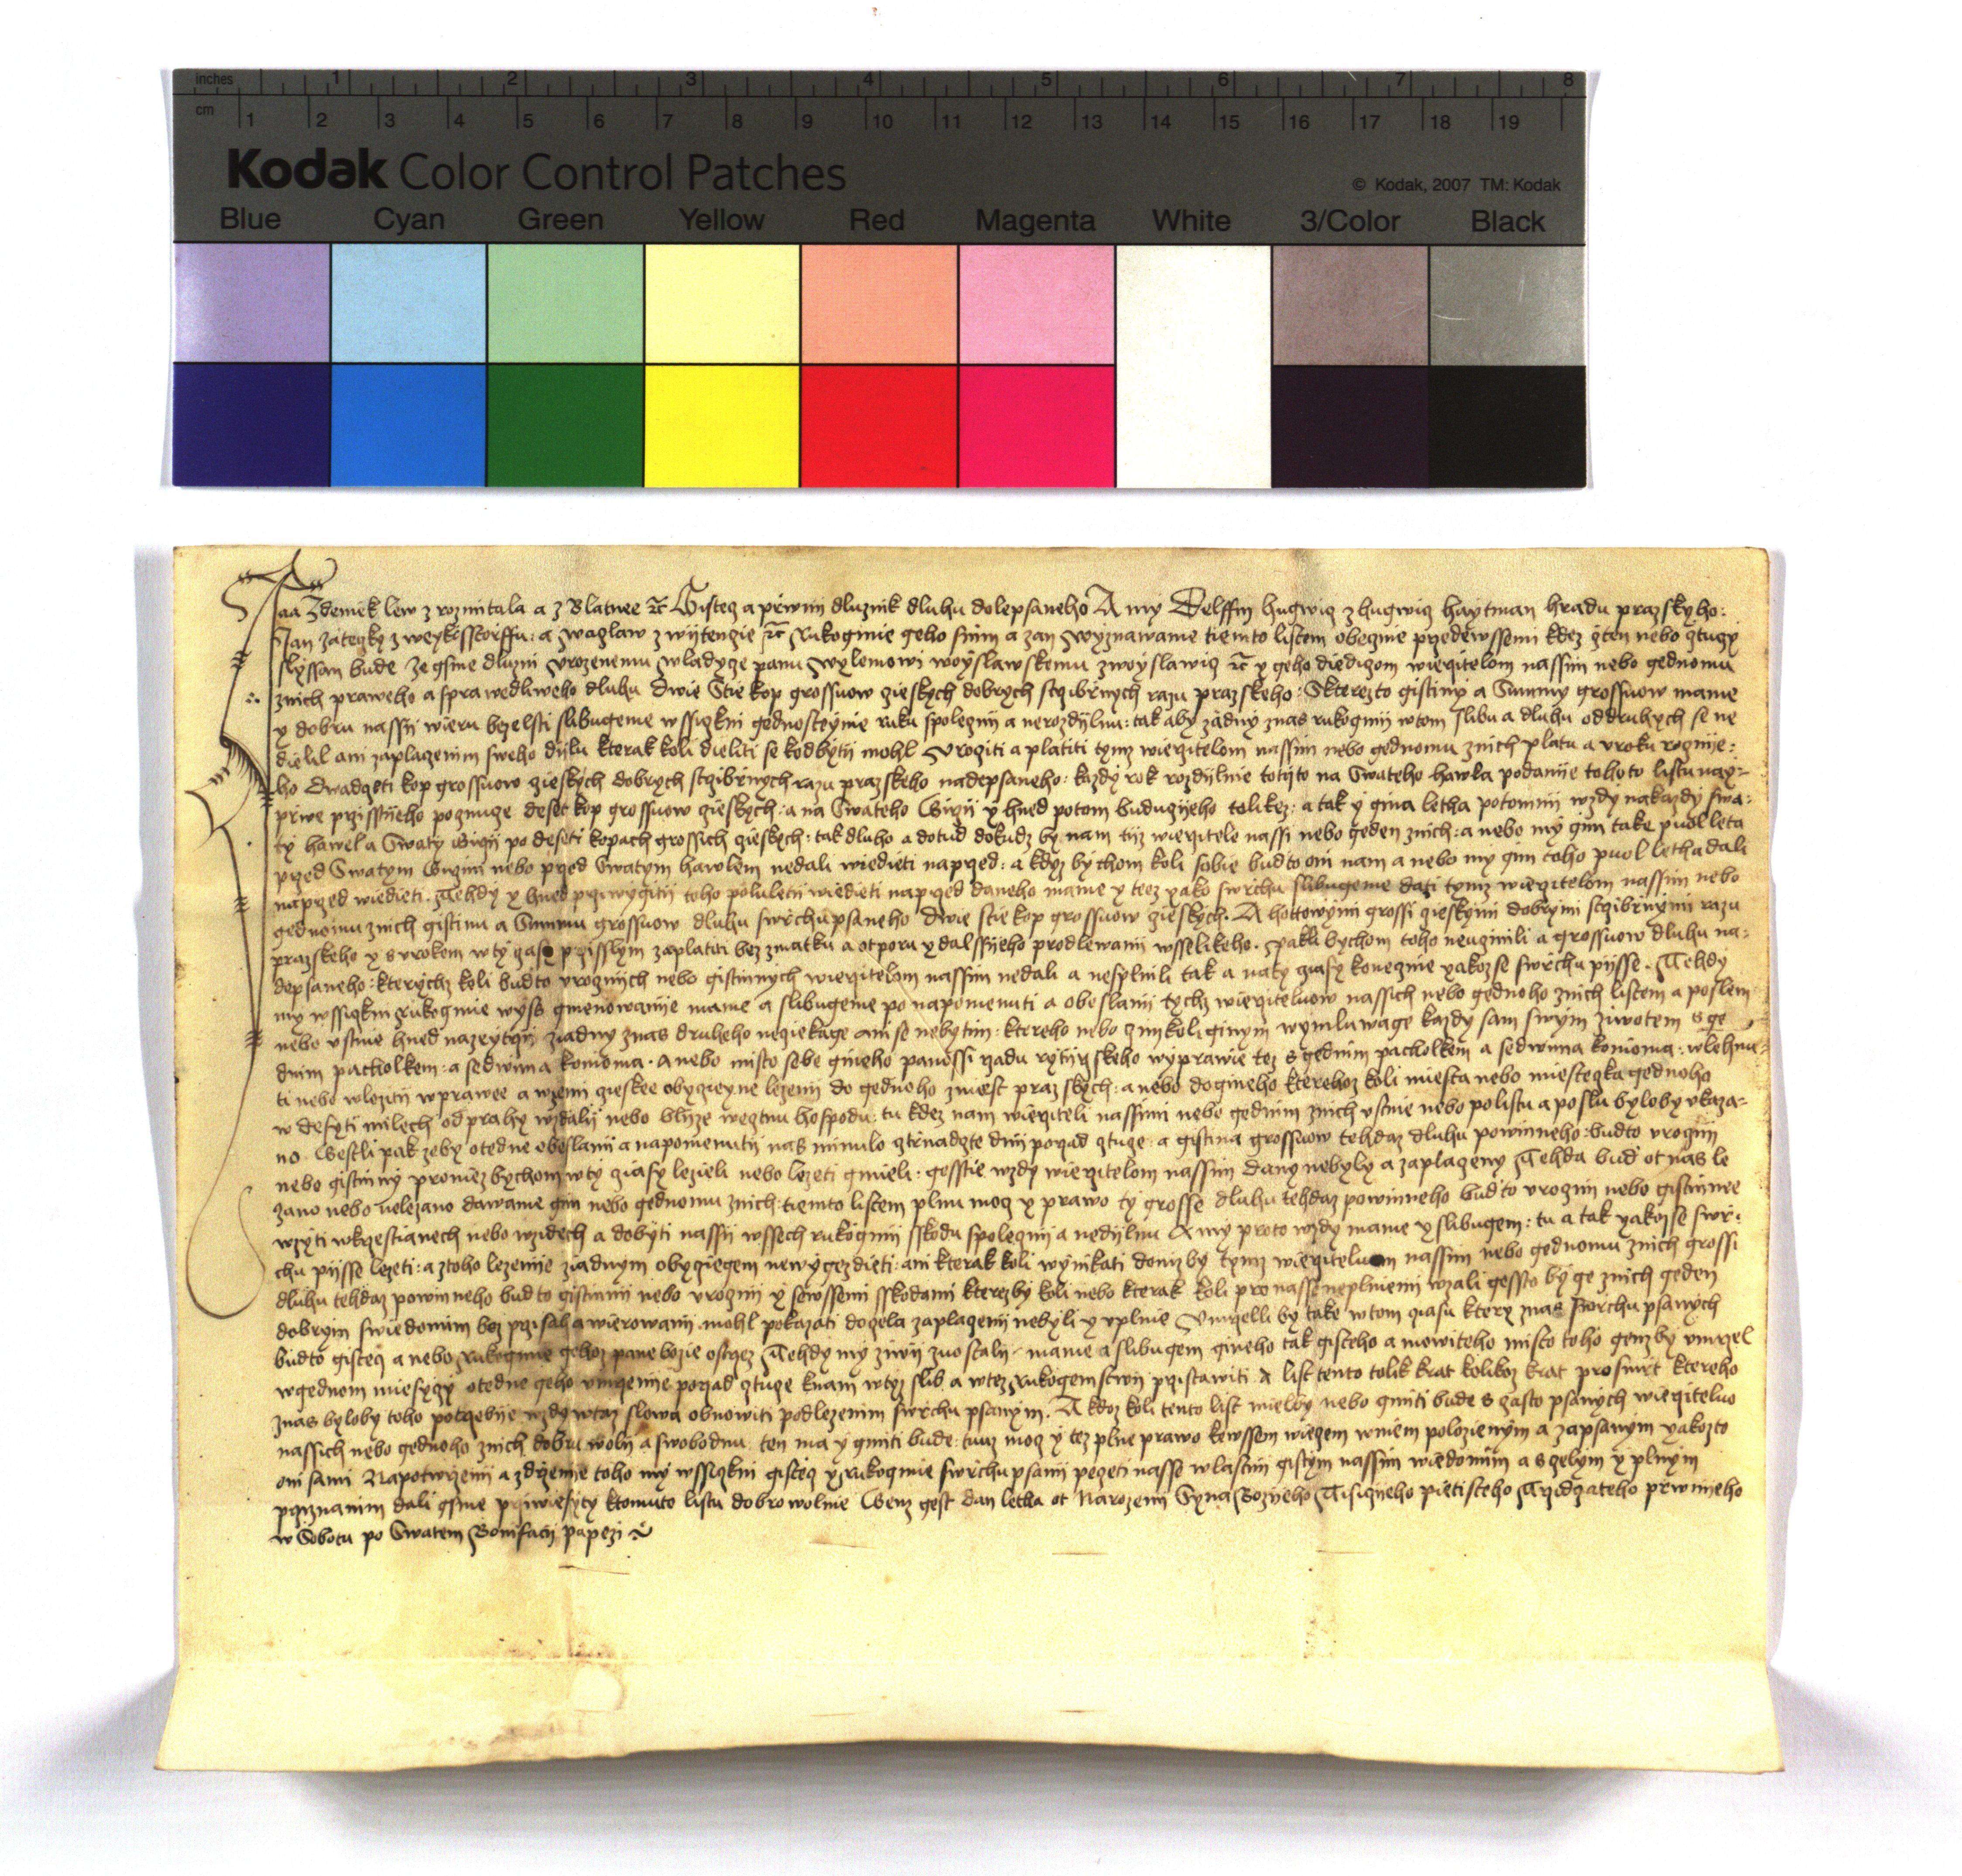 inches 1 2 3 4 5 6 7 8
cm 1 2 3 4 5 6 7 8 9 10 11 12 13 14 15 16 17 18 19
Kodak Color Control Patches
© Kodak, 2007 TM: Kodak
Blue Cyan Green Yellow Red Magenta White 3/Color Black
Jaa Zdenek lew z rozmitala a z Blatnee Gistecz a prwnij dluznik dluhu dolepsaneho A my Delffin hugwicz z hugwicz haytman hradu prazskyho:
Jan zateczky z weykersstorffu: a waczlaw z wijtenczie Rukogmie geho s nim a zan wyznawame tiemto listem obecznie przedewssemi kdez cten nebo cztuczy
slyssan bude ze gsme dluzni urozenemu wladycze panu wylemowi woyslawskemu z woyslawicz y geho diediczom wierzitelom nassim nebo gednomu
znich praweho a sprawedliweho dluhu dwie Stie kop grossuow czieskych dobrych strzibrnych razu prazskeho: Kterezto gistiny a Summy grossuow mame
y dobru nassij wieru bezelsti slibugeme wssiczkni gednosteynie ruku spoleczni a nerozdijlnu: tak aby zadny znas rukogmij w tom slibu a dluhu od druhych se ne
dielil ani zaplaczenim sweho dijlu kterak koli dieliti se kod bytij mohl Urocziti a platiti tymz wierzitelom nassim nebo gednomu znich platu a uroku rocznije:
ho dwadczeti kop grossuow czieskych dobrych strzibrnych razu prazskeho nadepsaneho: kazdy rok rozdijlnie totizto na Swateho hawla podanije tohoto listu nay=
prwe przisstijeho poczmucze deset kop grossuow czieskych: a na Swateho Girzij y hned potom buduczijeho tolikez: a tak y gina letha potomnij wzdy nakazdy swa:
ty hawel a Swaty Girzij po deseti kopach grossich czieskych: tak dluho a dotud dokudz by nam tijz wierzitele nassi nebo geden znich: a nebo my gim take puol leta
przed Swatym Girzim nebo przed Swatym hawlem nedali wiedieti naprzed: a kdyz bychom koli sobie budto oni nam a nebo my gim toho puol letha dali
naprzed wiedieti. Tehdy y hned przi wygitij toho pololetij wiedieti naprzed daneho mame y teez yako swrchu slibugeme dati tymz wierzitelom nassim nebo
gednomu znich gistinu a Summu grossuow dluhu swrchupsaneho dwie stie kop grossuow czieskych. A hottowymi grossi czieskymi dobrymi strzibrnymi razu
prazskeho y s urokem w ty czasy przisslym zaplatiti bez zmatku a otporu y dalssijeho prodlewanij wsselikeho. Pakli bychom toho neuczinili a grossuow dluhu na:
depsaneho: kterychz koli budto urocznijch nebo gistinnych wierzitelom nassim nedali a nesplnili tak a na ty cziasy konecznie yakoz se swrchu pijsse. Tehdy
my wssiczkni Rukogmie wyss gmenowanije mame a slibugeme po napomenuti a obeslanij tychz wierziteluow nassich nebo gednoho znich listem a poslem
nebo ustnie hned nazeytrzij ziadny znas druheho neczekage ani se nebytim: ktereho nebo czimkoli ginym wymluwage kazdy sam swym ziwotem s ge
dnim pacholkem: a sedwima konioma. a nebo misto sebe gineho panossi rzadu rytijrzskeho wyprawie tez s gednim pacholkem a sedwima konioma: wlehnu=
ti nebo wlozitij w prawee a w zemi czieskee obyczieyne lezenij do gednoho z miest prazskych: a nebo do gineho kterehoz koli miesta nebo miesteczka gednoho
w desyti milech od prahy wzdalij nebo blijze wectnu hospodu: tu kdez nam wierziteli nassimi nebo gednim znich ustnie nebo po listu a poslu byloby ukaza=
no Gestli pak zeby ote dne obeslanij a napomenutij nas minulo cztrnadczte dnij porzad cztucze: a gistina grossuow tehdaz dluhu powinneho: budto uroczni
nebo gistinny proniez bychom w ty cziasy lezieli nebo lezeti gmieli: gesstie wzdy wierzitelom nassim dany nebyly a zaplaczeny Tehda bud ot nas le
zano nebo nelezano dawame gim nebo gednomu znich: tiemto listem plnu mocz y prawo ty grosse dluhu tehdaz powinneho budto uroczni nebo gistinnee
wzyti w krzestianech nebo w zidech a dobyti nassij wssech rukogmij sskodu spoleczni a nedijlnu A my proto wzdy mame y slibugem: tu a tak yakoz se swr:
chu pijsse lezeti: a z toho lezenije ziadnym obycziegem newygezdieti: ani kterak koli wynikati doniz by tymz wierziteluom nassim nebo gednomu znich grossi
dluhu tehdaz powinneho budto gistinnij nebo urocznij y sewssemi sskodami kterezby koli nebo kterak koli pro nasse neplnieni wzali gessto by ge znich geden
dobrym swiedomim bez przisah a wierowanij mohl pokazati docela zaplaczeni nebyli y uplnie Umrzelli by take w tom cziasu ktery znas swrchu psanych
budto gistecz a nebo rukogmie gehoz pane bozie ostrzez Tehdy my ziwij zuostali mame a slibugem gineho tak gisteho a mowiteho misto toho genz by umrzel
w gednom miesyczy ote dne geho umrzenie porzad cztucze knam w tyz slib a w tez Rukogemstwij przistawiti. A list tento tolik krat kolikoz krat pro smrt ktereho
znas byloby toho potrzebije wzdy w taz slowa obnowiti podlezenim swrchu psanym. A kdoz koli tento list mielby nebo gmiti bude s czasto psanych wierziteluo
nassich nebo gednoho znich dobru wolij a swobodnu ten ma y gmiti bude: tuuz mocz y tez plne prawo kewssem wieczem w niem polozienym a zapsanym yakozto
oni sami Napotwrzenij a zdrzenie toho my wssiczkni gistecz y Rukogmie swrchupsanij peczeti nasse wlastni gistym nassim wiedomim a s czelym y plnym
przyznanim dali gsme przywiesyty ktomuto listu dobrowolnie Genz gest dan letha ot Narozeni Syna Bozijeho Tisiczijeho pietisteho Trzidczateho prwnijeho
w Sobotu po Swatem Bonifacij papezi